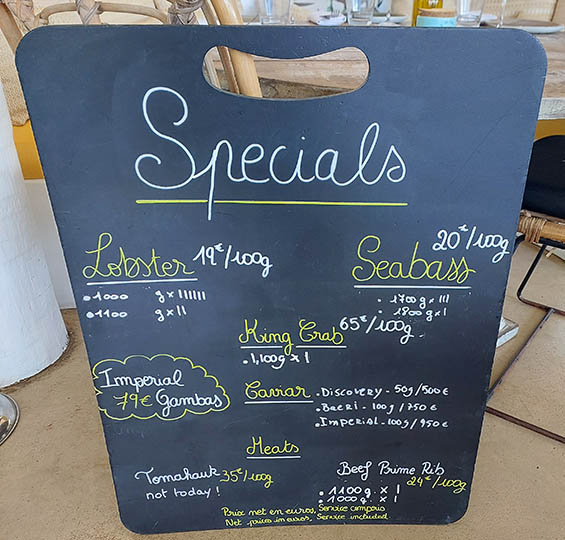 Specials
Lobster 19€/100g
• 1000 g x IIIIII
• 1100 g x II
Seabass 20€/100g
• 1700 g x III
• 1800 g x I
King Crab 65€/100g
• 1,100g x I
Imperial
79€ Gambas
Caviar • Discovery - 50g/500€
• Baeri - 100g/750€
• Imperial - 100g/950€
Meats
Tomahauk 35€/100g
not today!
Beef Prime Rib
24€/100g
• 1100 g x I
• 1000 g x I
Prix net en euros, Service compris
Net prices in euros, Service included